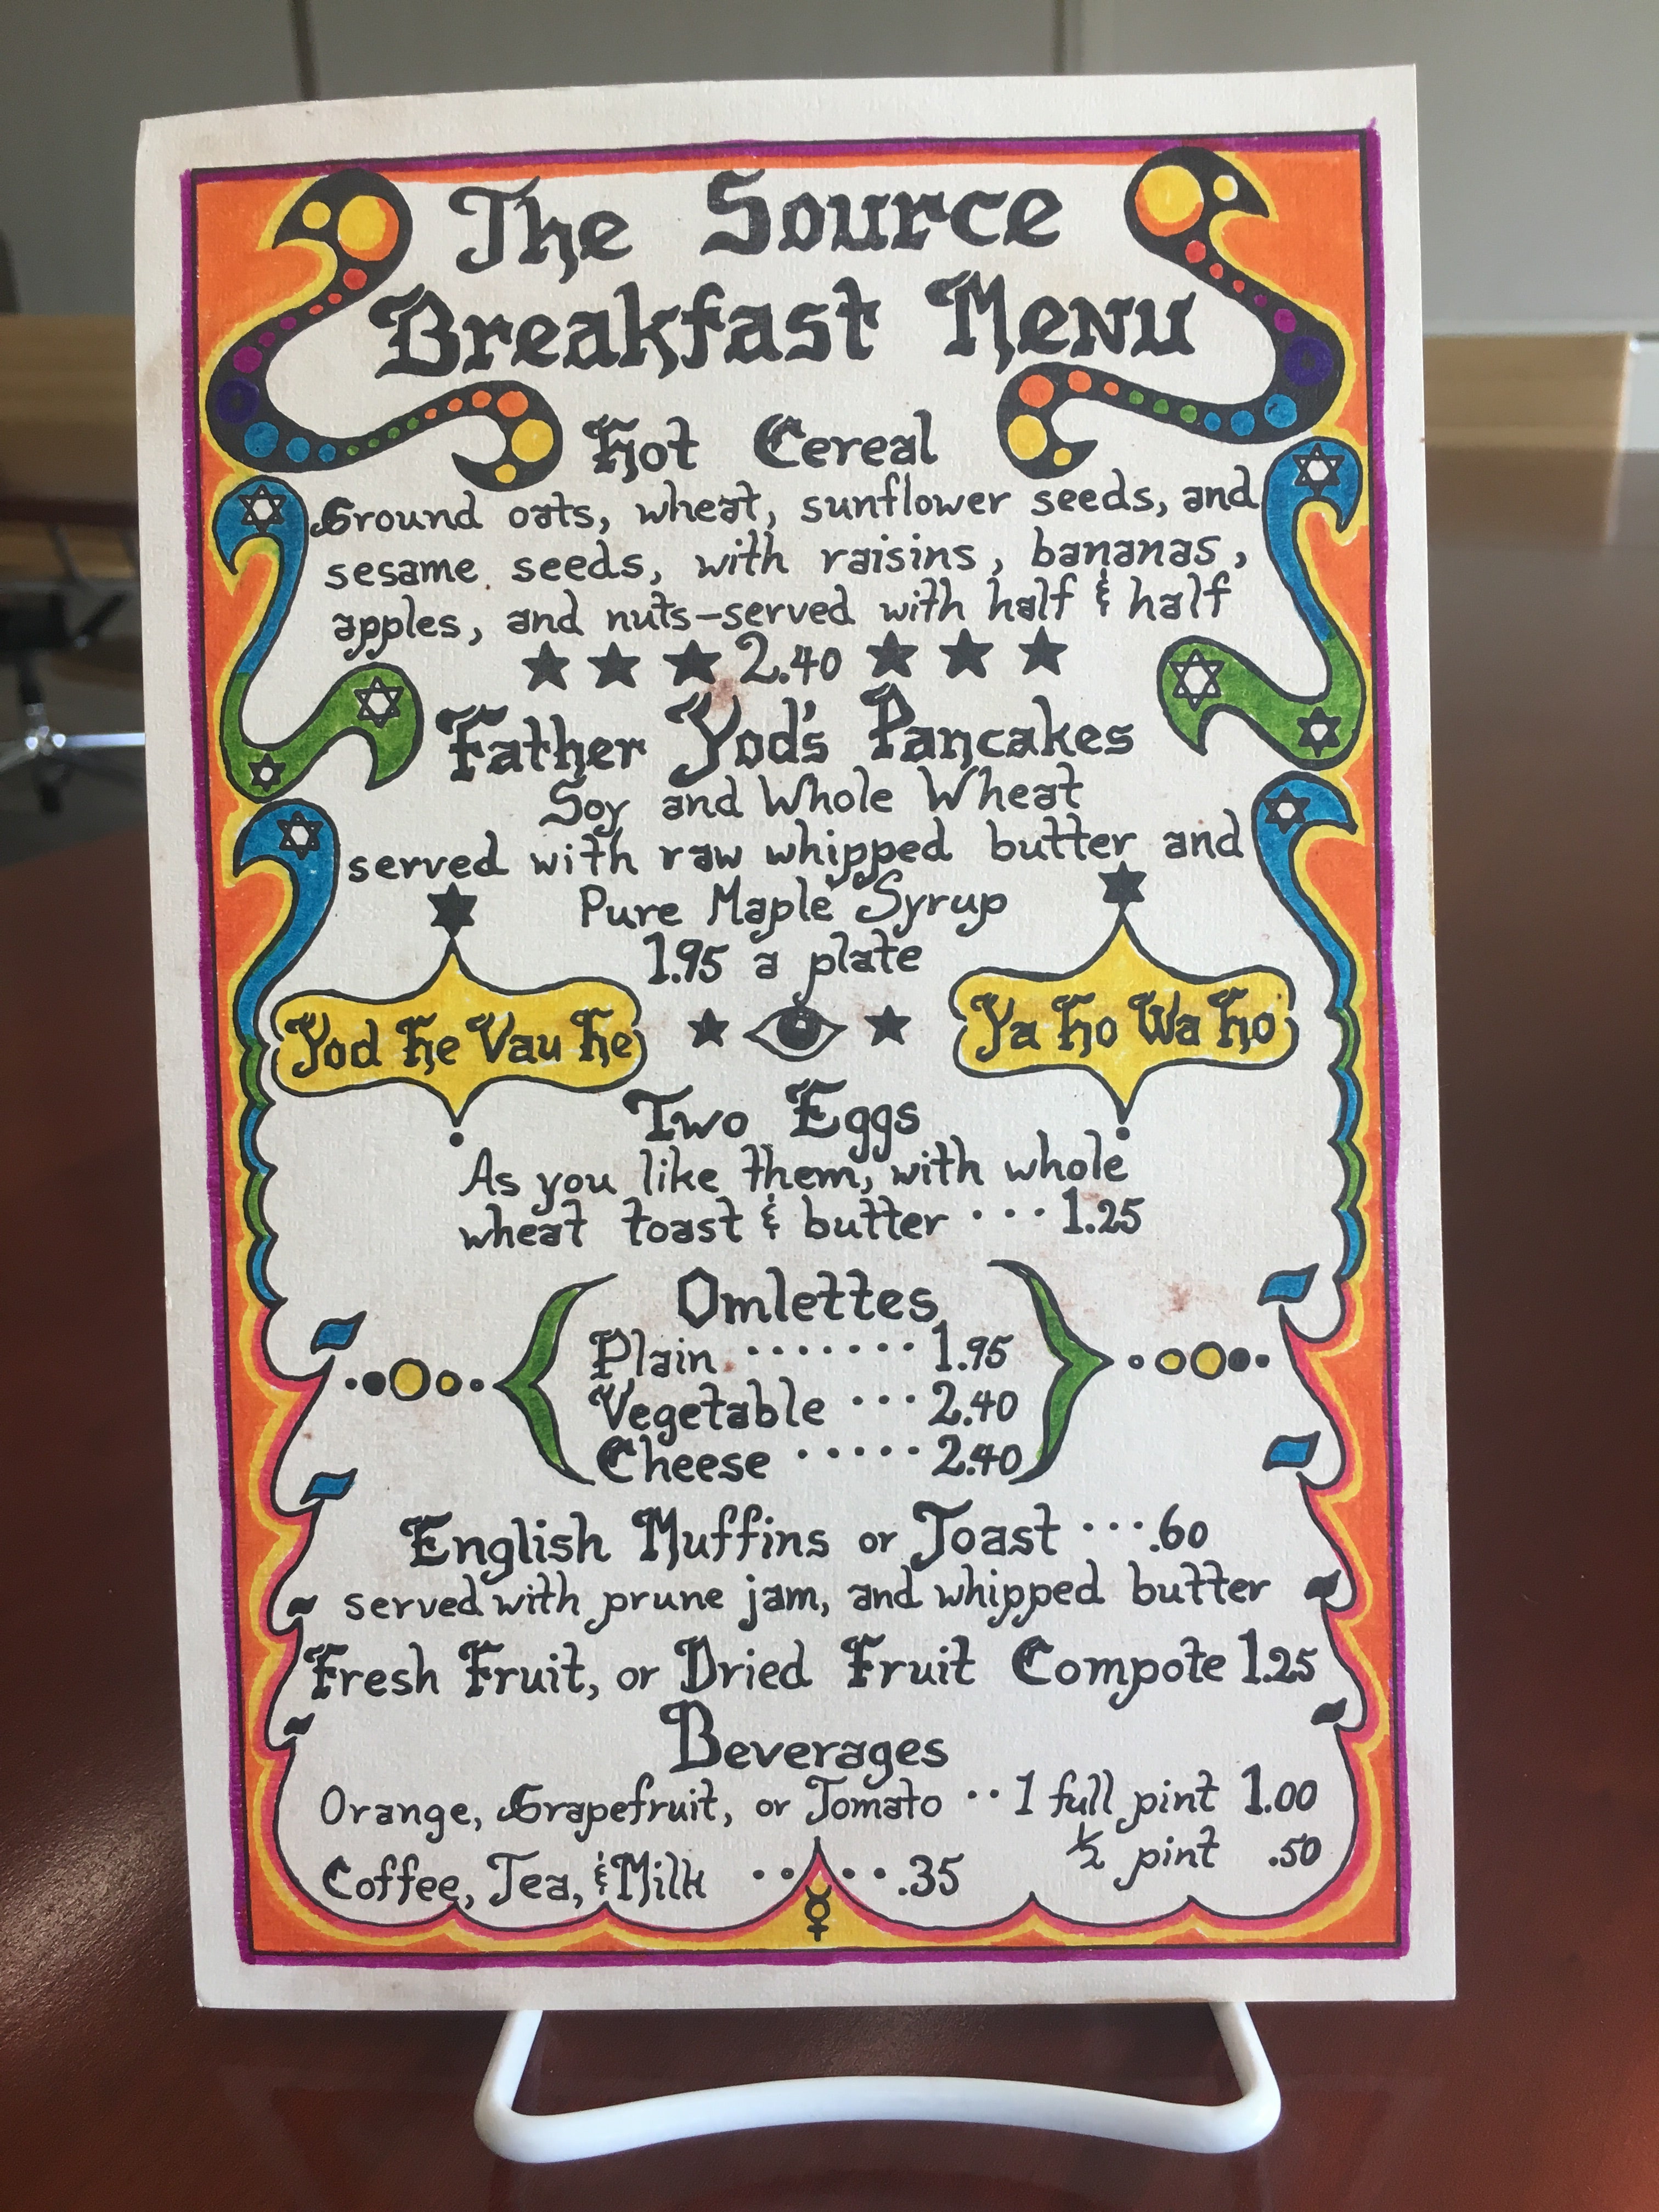 The Source
Breakfast Menu
Hot Cereal
Ground oats, wheat, sunflower seeds, and
sesame seeds, with raisins, bananas,
apples, and nuts-served with half & half
★ ★ ★ 2.40 ★ ★ ★
Father Yod's Pancakes
Soy and Whole Wheat
served with raw whipped butter and
Pure Maple Syrup
1.95 a plate
Yod He Vau He
Ya Ho Wa Ho
Two Eggs
As you like them, with whole
wheat toast & butter ... 1.25
Omlettes
Plain ....... 1.95
Vegetable ... 2.40
Cheese ..... 2.40
English Muffins or Toast ... .60
served with prune jam, and whipped butter
Fresh Fruit, or Dried Fruit Compote 1.25
Beverages
Orange, Grapefruit, or Tomato .. 1 full pint 1.00
½ pint .50
Coffee, Tea, & Milk .... .35